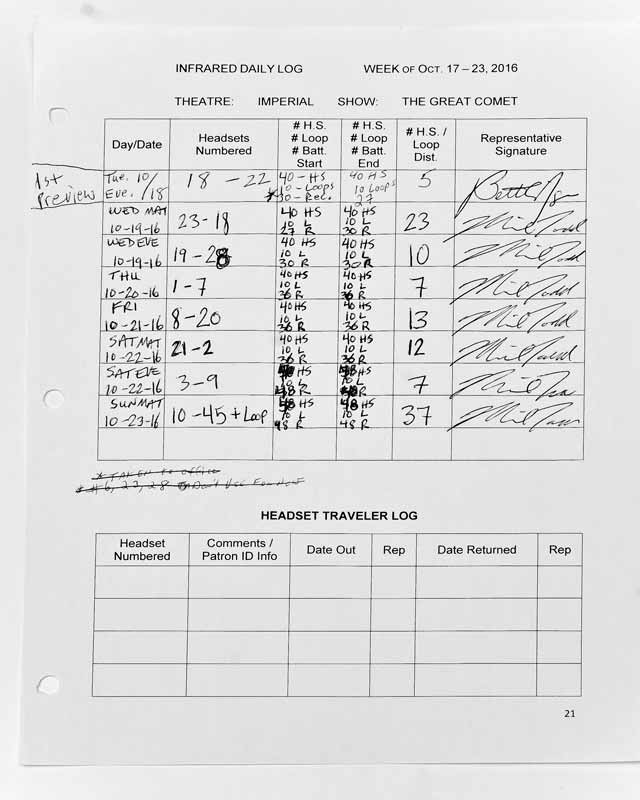 INFRARED DAILY LOG WEEK OF OCT. 17 – 23, 2016
THEATRE: IMPERIAL SHOW: THE GREAT COMET
Day/Date Headsets Numbered # H.S. # Loop # Batt. Start # H.S. # Loop # Batt. End # H.S. / Loop Dist. Representative Signature
1st Preview Tue. 10/18 Eve. 18 - 22 40 - HS *10 - Loops 30 - Rec. 40 HS 10 Loops 27 5
WED MAT 10-19-16 23-18 40 HS 10 L 27 R 40 HS 10 L 30 R 23
WED EVE 10-19-16 19-28 40 HS 10 L 30 R 40 HS 10 L 30 R 10
THU 10-20-16 1-7 40 HS 10 L 36 R 40 HS 10 L 36 R 7
FRI 10-21-16 8-20 40 HS 10 L 36 R 40 HS 10 L 36 R 13
SAT MAT 10-22-16 21-2 40 HS 10 L 36 R 40 HS 10 L 36 R 12
SAT EVE 10-22-16 3-9 HS 10 L 48 R HS 10 L R 7
SUN MAT 10-23-16 10-45 + Loop 48 HS 10 L 48 R 48 HS 10 L 48 R 37
* TAKEN TO OFFICE
* # 6, 23, 28 Don't Use For Now
HEADSET TRAVELER LOG
Headset Numbered Comments / Patron ID Info Date Out Rep Date Returned Rep
21